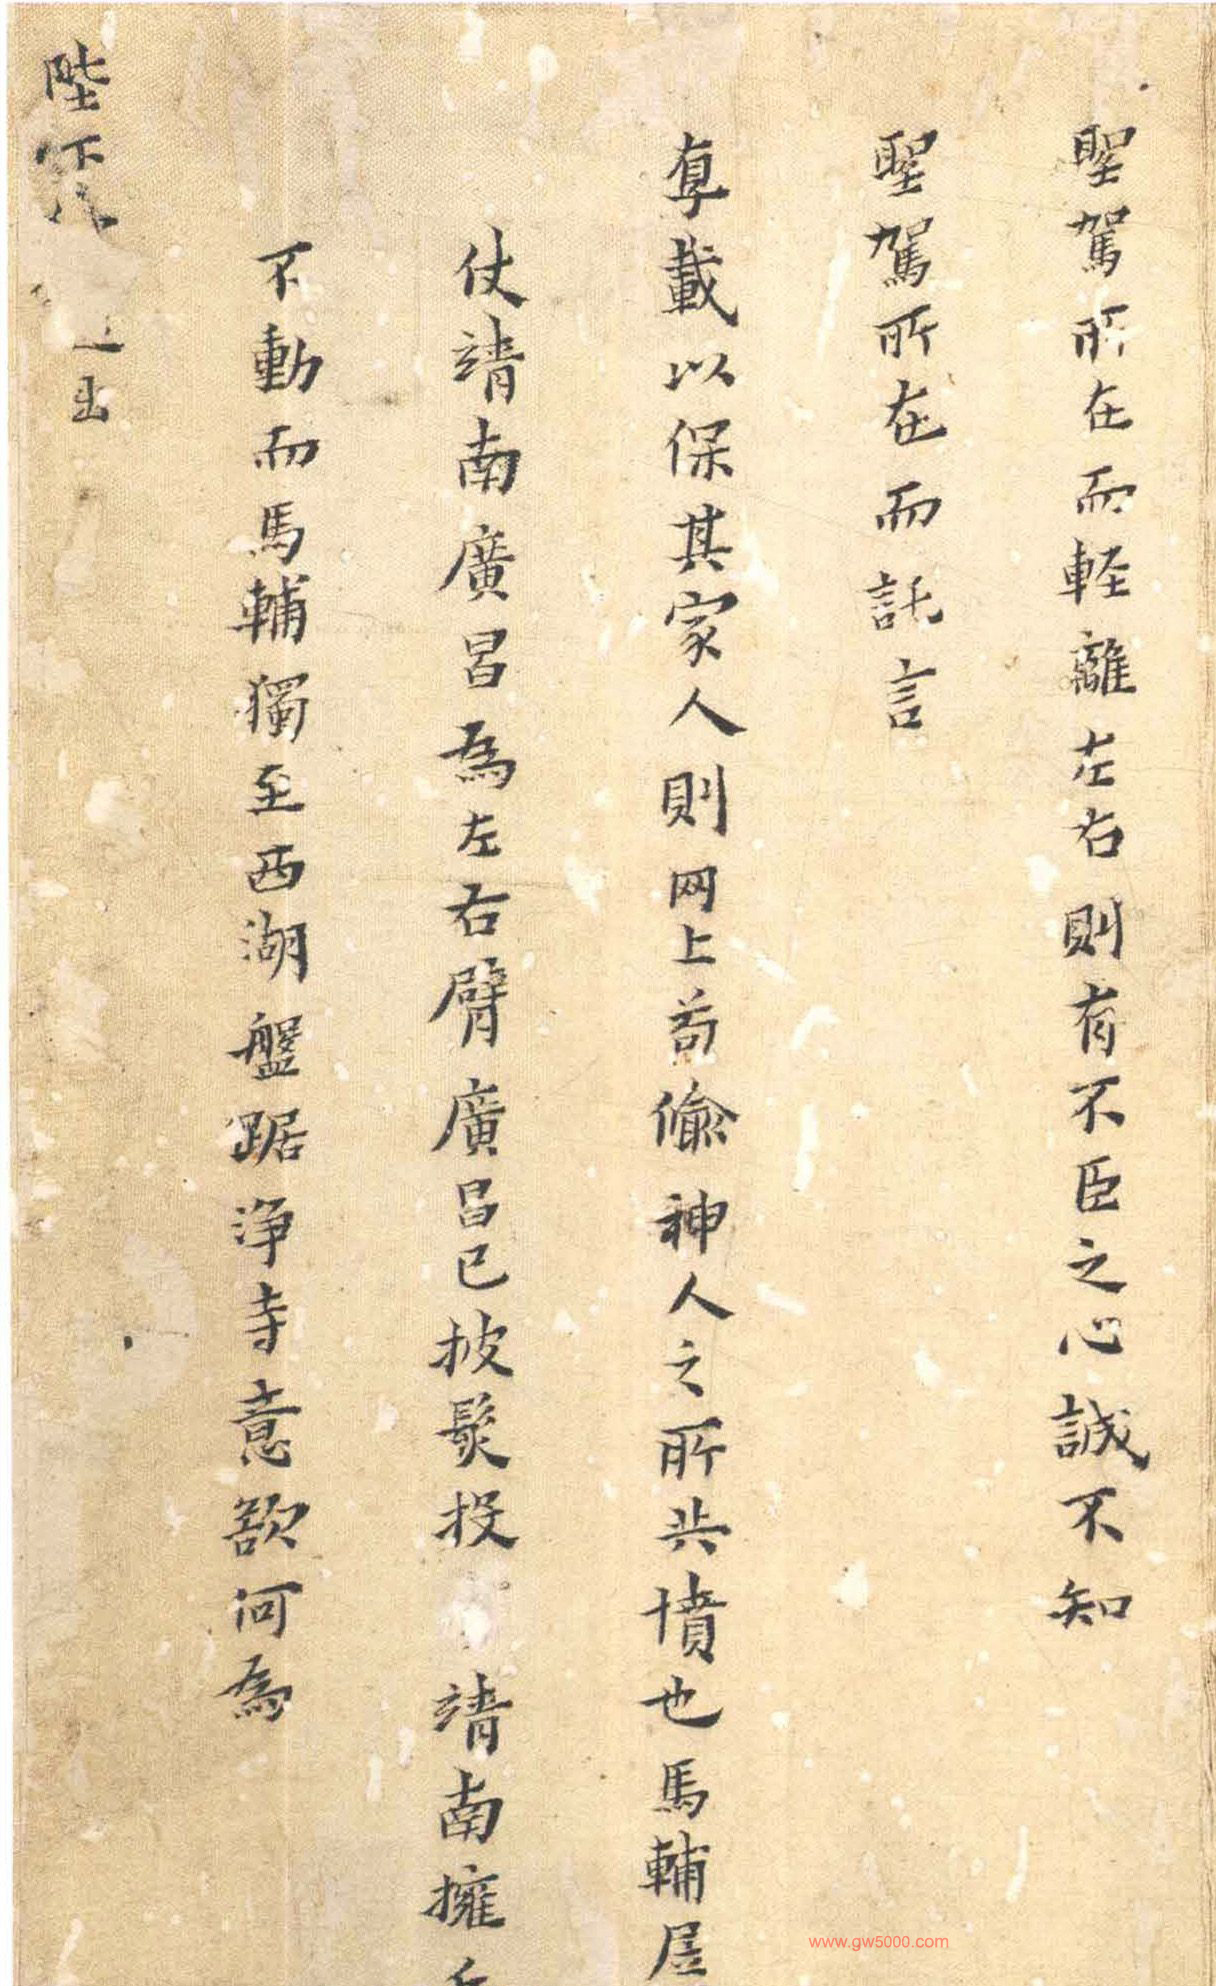 聖駕所在而軽離左右則有不臣之心誠不知
聖駕所在而託言
載以保其家人則网上苟偷神人之所共憤也馬輔居
仗靖南廣昌為左右臂廣昌已披髮投靖南擁
不動而馬輔獨至西湖盤踞浄寺意欲何為
陛下
出
www.gw5000.com